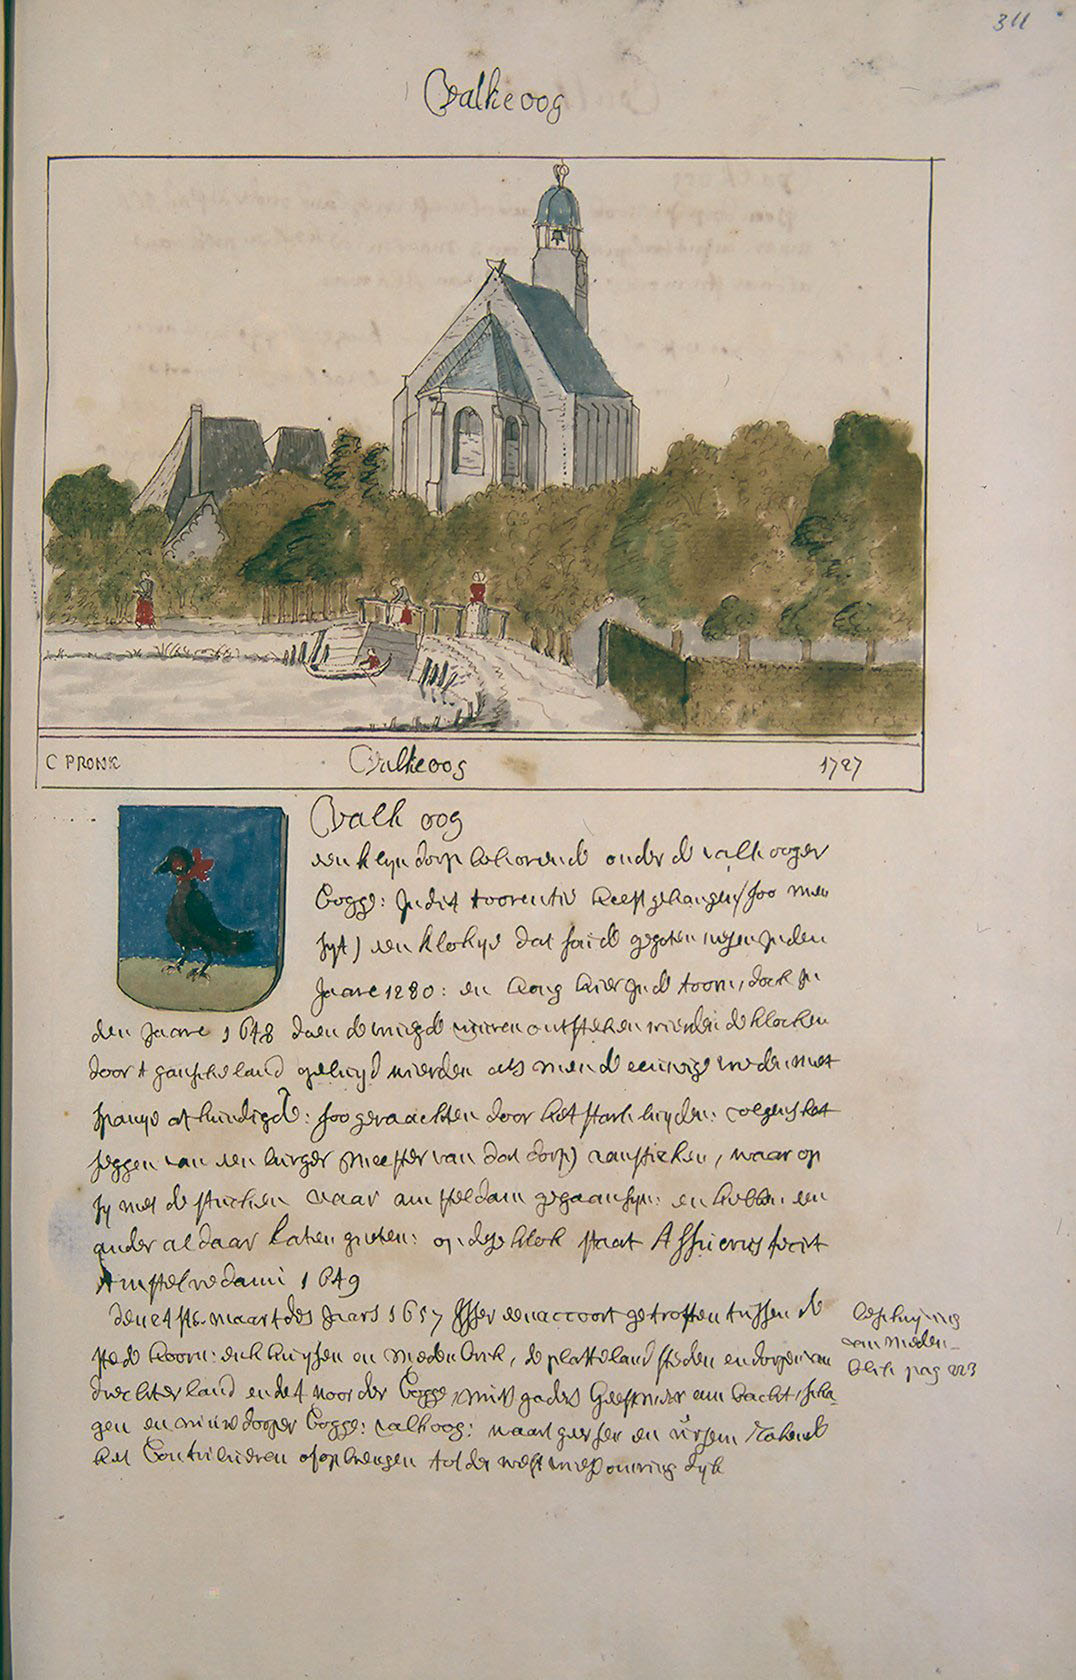 311
Valkeoog
C PRONK Valkeoog 1727
Valk oog
een klyn dorp behorende onder de valkooger
Cogge: In dit toorentie heeft gehangen (soo men
syt) een klokye dat soude gegoten wesen in den
Jaare 1280: en hong hier in de toorn, doch in
den Jaare 1648 doen de vreugde vuuren ontsteken wierden de klocken
door t gansche land geluyd wierden als men de eeuwige vrede met
Spanye afkundigde: soo geraackten door het stark luyden: volgens het
seggen van een burger meester van dat dorp) aan sticken, waar op
sy met de stucken naar amsteldam gegaan syn: en hebben een
ander aldaar laten gieten: op dese klok staat Assuerus fecit
Amstelredami 1649
den 24 ste maart des Jaars 1657 Isser een accoort getroffen tussen de
stede hoorn: enkhuysen en medenblik, de platteland steden en dorpen van
drechterland ende 4 noorder Cogge, mits gaders Geestmer am bacht, scha
gen en nieudorper Cogge: valkoog: waart geerser en ursem Rakende
het Contribueren of opbrengen tot de west vriese omring dyk
beschryving
van meden
blik pag 223